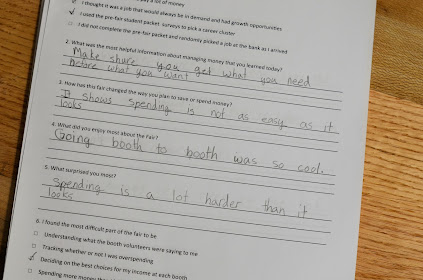 a lot of money
✓ I thought it was a job that would always be in demand and had growth opportunities
✓ I used the pre-fair student packet surveys to pick a career cluster
□ I did not complete the pre-fair packet and randomly picked a job at the bank as I arrived
2. What was the most helpful information about managing money that you learned today?
Make shure you get what you need
before what you want
3. How has this fair changed the way you plan to save or spend money?
It shows spending is not as easy as it
looks
4. What did you enjoy most about the fair?
Going booth to booth was so cool.
5. What surprised you most?
Spending is a lot harder than it
looks
6. I found the most difficult part of the fair to be
□ Understanding what the booth volunteers were saying to me
□ Tracking whether or not I was overspending
✓ Deciding on the best choices for my income at each booth
□ Spending more money